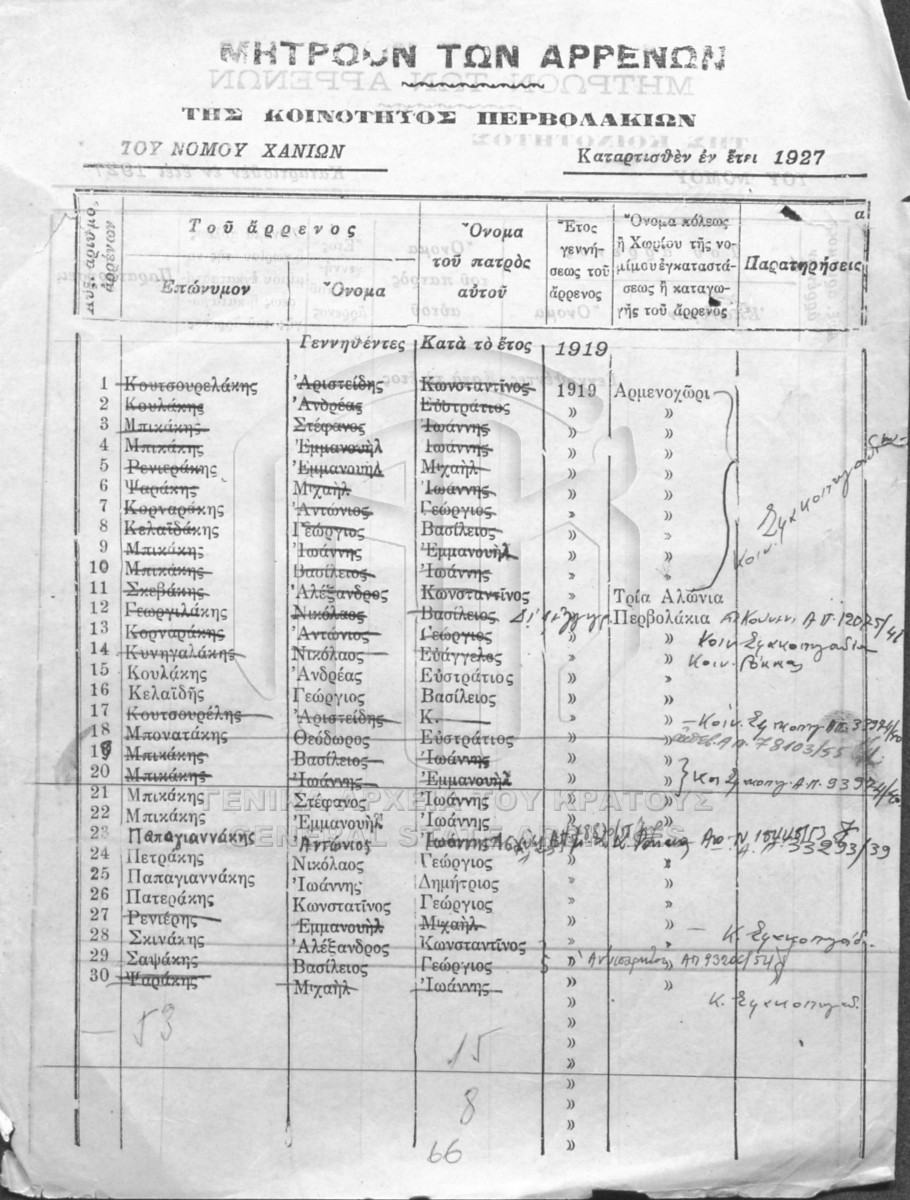 ΜΗΤΡΩΟΝ ΤΩΝ ΑΡΡΕΝΩΝ
ΤΗΣ ΚΟΙΝΟΤΗΤΟΣ ΠΕΡΒΟΛΑΚΙΩΝ
ΤΟΥ ΝΟΜΟΥ ΧΑΝΙΩΝ Καταρτισθὲν ἐν ἔτει 1927
α
Αὔξ. ἀριθμὸς ἀρρένων
Τοῦ ἄρρενος
Ἐπώνυμον Ὄνομα
Ὄνομα τοῦ πατρὸς αὐτοῦ
Ἔτος γεννήσεως τοῦ ἄρρενος
Ὄνομα πόλεως ἢ Χωρίου τῆς νομίμου ἐγκαταστάσεως ἢ καταγωγῆς τοῦ ἄρρενος
Παρατηρήσεις
Γεννηθέντες Κατὰ τὸ ἔτος 1919
1 Κουτσουρελάκης Ἀριστείδης Κωνσταντῖνος 1919 Ἀρμενοχῶρι
2 Κουλάκης Ἀνδρέας Εὐστράτιος » »
3 Μπικάκης Στέφανος Ἰωάννης » »
4 Μπικάκης Ἐμμανουὴλ Ἰωάννης » »
5 Ρενιεράκης Ἐμμανουὴλ Μιχαὴλ » »
6 Ψαράκης Μιχαὴλ Ἰωάννης » »
7 Κορναράκης Ἀντώνιος Γεώργιος » »
8 Κελαϊδάκης Γεώργιος Βασίλειος » »
9 Μπικάκης Ἰωάννης Ἐμμανουὴλ » »
10 Μπικάκης Βασίλειος Ἰωάννης » »
11 Σκεβάκης Ἀλέξανδρος Κωνσταντῖνος » Τρία Ἁλώνια
12 Γεωργιλάκης Νικόλαος Βασίλειος Περβολάκια Α.Π. 12025/41
13 Κορναράκης Ἀντώνιος Γεώργιος » » Κοιν.
14 Κυνηγαλάκης Νικόλαος Εὐάγγελος » » Κοιν. Ρόκκας
15 Κουλάκης Ἀνδρέας Εὐστράτιος » »
16 Κελαϊδῆς Γεώργιος Βασίλειος » »
17 Κουτσουρέλης Ἀριστείδης Κ. » » Κοιν.
18 Μπονατάκης Θεόδωρος Εὐστράτιος » » Α.Π. 78103/55
19 Μπικάκης Βασίλειος Ἰωάννης » »
20 Μπικάκης Ἰωάννης Ἐμμανουὴλ » »
21 Μπικάκης Στέφανος Ἰωάννης » »
22 Μπικάκης Ἐμμανουὴλ Ἰωάννης » »
23 Παπαγιαννάκης Ἀντώνιος Ἰωάννης
24 Πετράκης Νικόλαος Γεώργιος » » Α.Π. 33293/39
25 Παπαγιαννάκης Ἰωάννης Δημήτριος » »
26 Πατεράκης Κωνσταντῖνος Γεώργιος » »
27 Ρενιέρης Ἐμμανουὴλ Μιχαὴλ » »
28 Σκινάκης Ἀλέξανδρος Κωνσταντῖνος » »
29 Σαψάκης Βασίλειος Γεώργιος » »
30 Ψαράκης Μιχαὴλ Ἰωάννης » »
53
15
8
66
ΓΕΝΙΚΑ ΑΡΧΕΙΑ ΤΟΥ ΚΡΑΤΟΥΣ
GENERAL STATE ARCHIVES